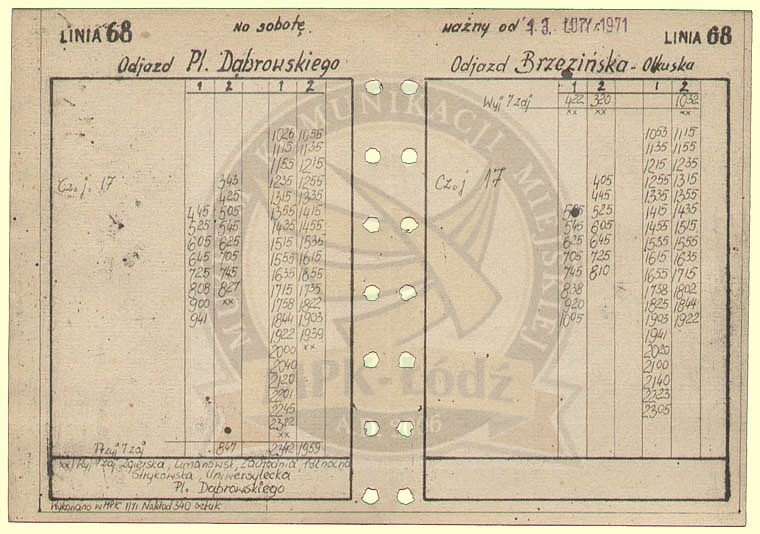 LINIA 68 na sobotę. ważny od 1 3. LUTY 1971 LINIA 68
Odjazd Pl. Dąbrowskiego Odjazd Brzezińska - Olkuska
1 2 1 2 1 2 1 2
Wyj 7 zaj 422 320 1032
xx xx xx
1026 1055 1053 1115
1115 1135 1135 1155
1155 1215 1215 1235
Cz. j. 17 343 1235 1255 Cz. j 17 405 1255 1315
425 1315 1335 445 1335 1355
445 505 1355 1415 525 1415 1435
525 545 1435 1455 545 605 1455 1515
605 625 1515 1535 625 645 1535 1555
645 705 1555 1615 705 725 1615 1635
725 745 1635 1655 745 810 1655 1715
808 827 1715 1735 838 1738 1802
900 xx 1758 1822 920 1825 1844
941 1844 1903 1005 1903 1922
1922 1939 1941
2000 xx 2020
2040 2100
2120 2140
2201 2223
2245 2305
2322
xx
Przyj 7 zaj 847 2342 1959
xx) Wyj 7 zaj. Zgierska, Limanowsk, Zachodnia, Północna
Strykowska, Uniwersytecka
Pl. Dąbrowskiego
Wykonano w MPK Nakład 340 sztuk
MUZEUM KOMUNIKACJI MIEJSKIEJ
MPK-Łódź